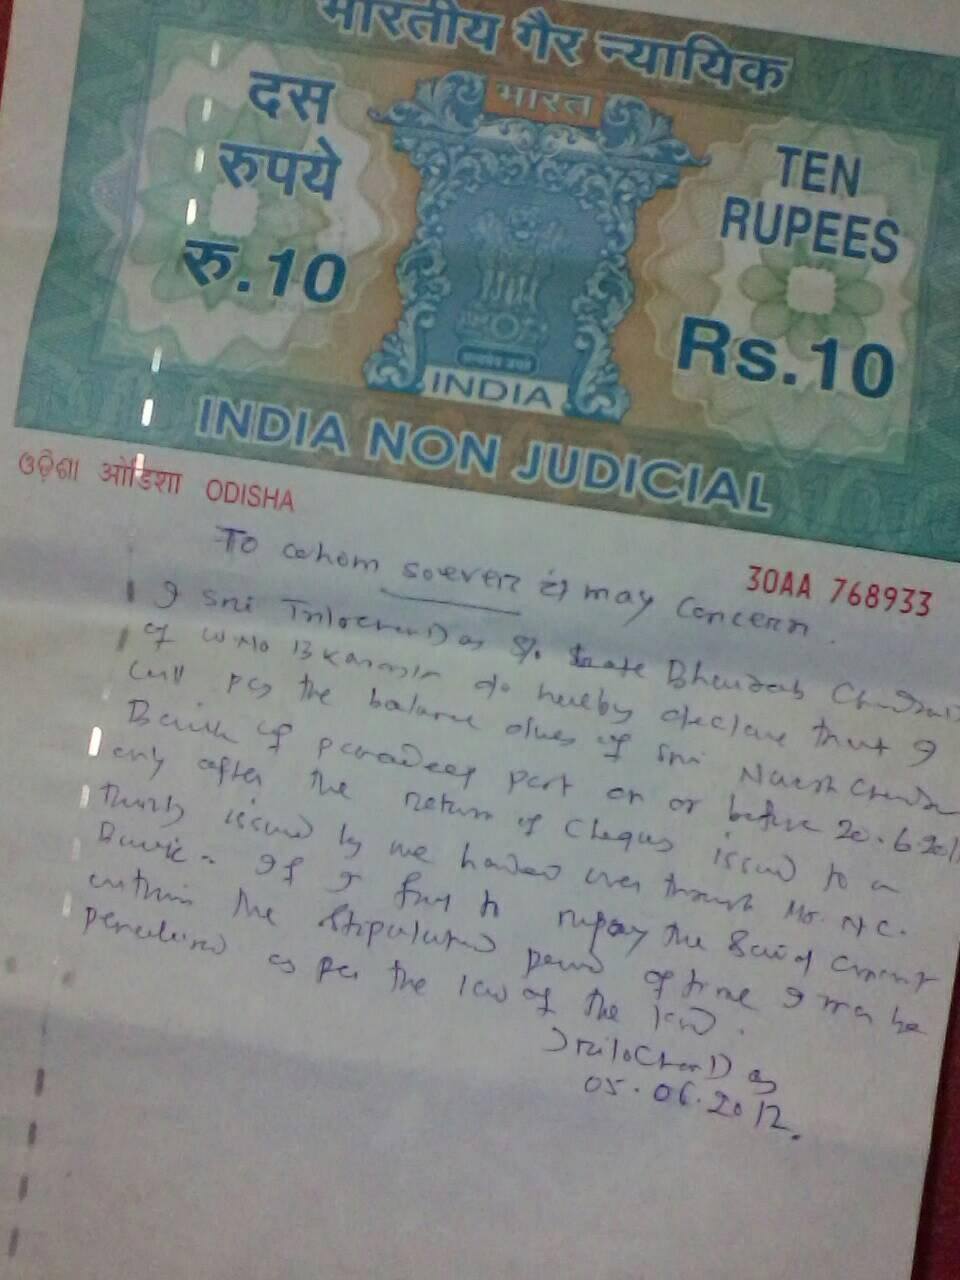 भारतीय गैर न्यायिक
भारत
दस
रुपये
रु.10
TEN
RUPEES
Rs.10
सत्यमेव जयते
INDIA
INDIA NON JUDICIAL
ଓଡ଼ିଶା ओडिशा ODISHA
30AA 768933
To whom soever it may concern.
I Sri Trilochan Das S/o. Late Bhendab Chandra
of W.No 13 do hereby declare that I
will pay the balance dues of Sri Naresh Chandra
Barik of paradeep port on or before 20.6.201
only after the return of Cheques issued to
issued by me handed over through Mr. N.C.
Barik - If I fail to repay the said amount
within the stipulated period of time I may be
penalised as per the law of the land.
Trilochan Das
05.06.2012.